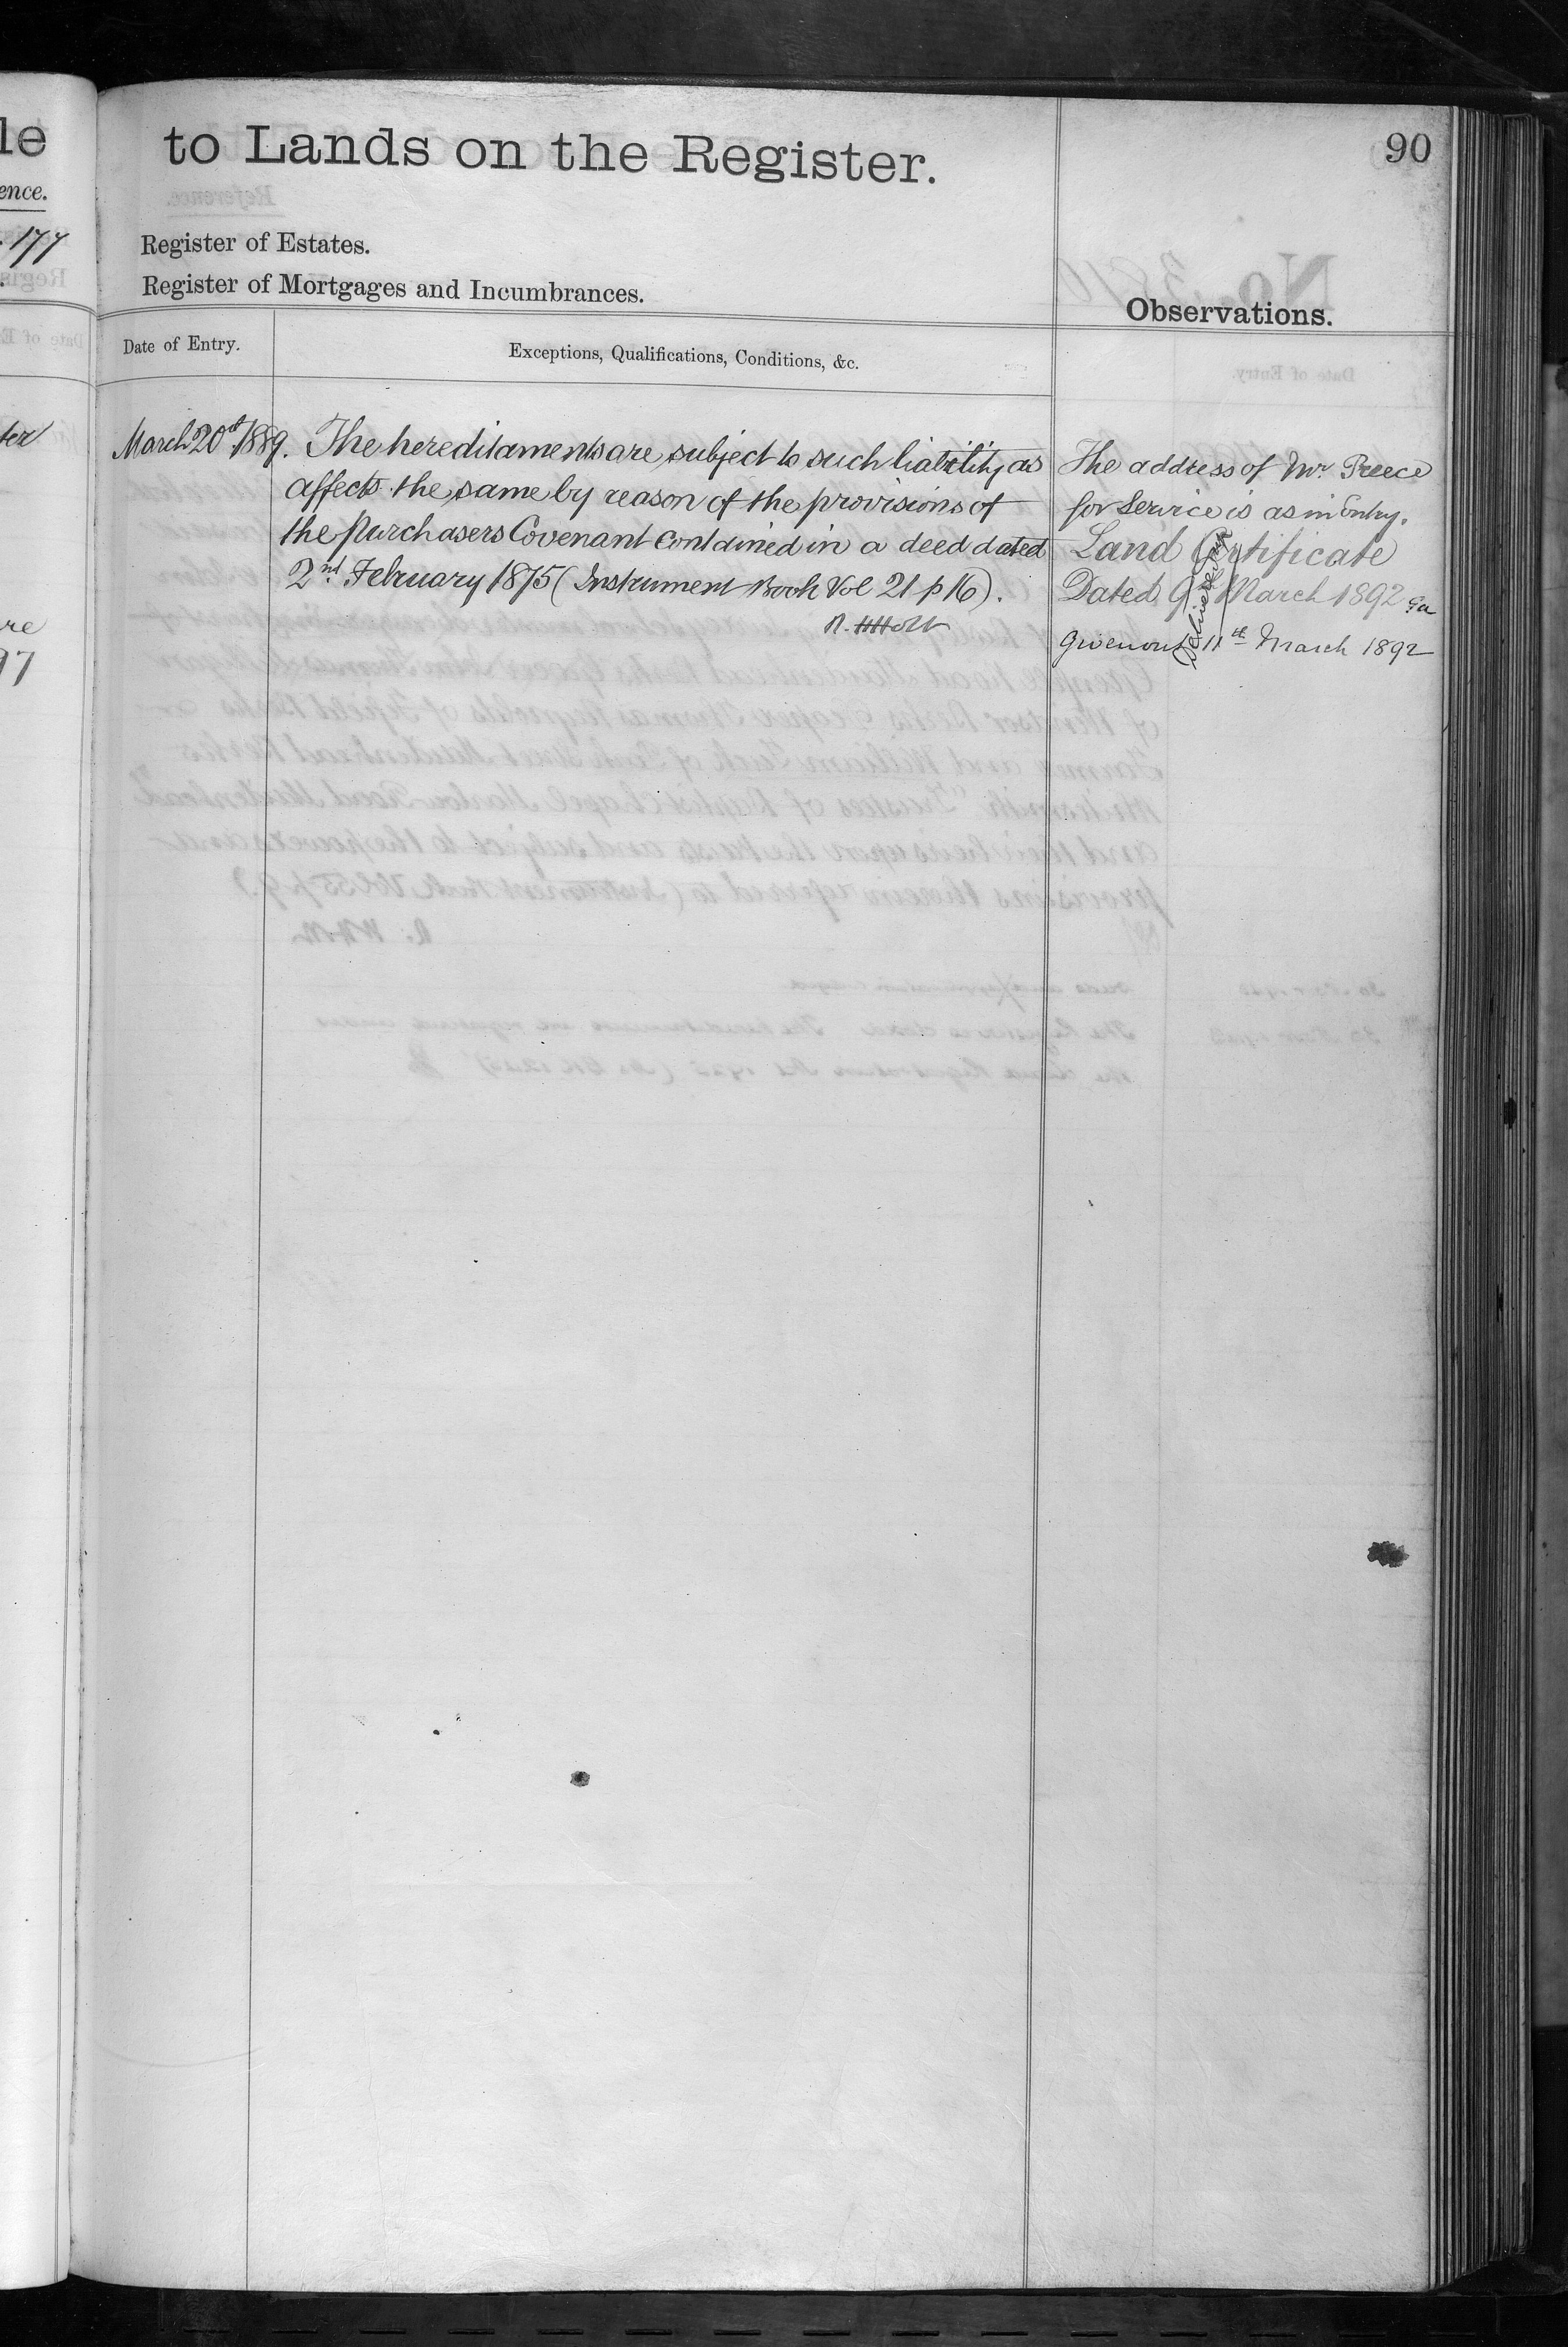 le
ence.
177
ter
re
97
to Lands on the Register.
90
Register of Estates.
Register of Mortgages and Incumbrances.
Observations.
Date of Entry.
Exceptions, Qualifications, Conditions, &c.
March 20th 1889. The hereditaments are subject to such liability as
affects the same by reason of the provisions of
the Purchasers Covenant contained in a deed dated
2nd February 1875 (Instrument Book Vol 21 p 16).
The address of Mr. Preece
for Service is as in Entry.
Land Certificate
Dated 9 March 1892
Given out 11th March 1892